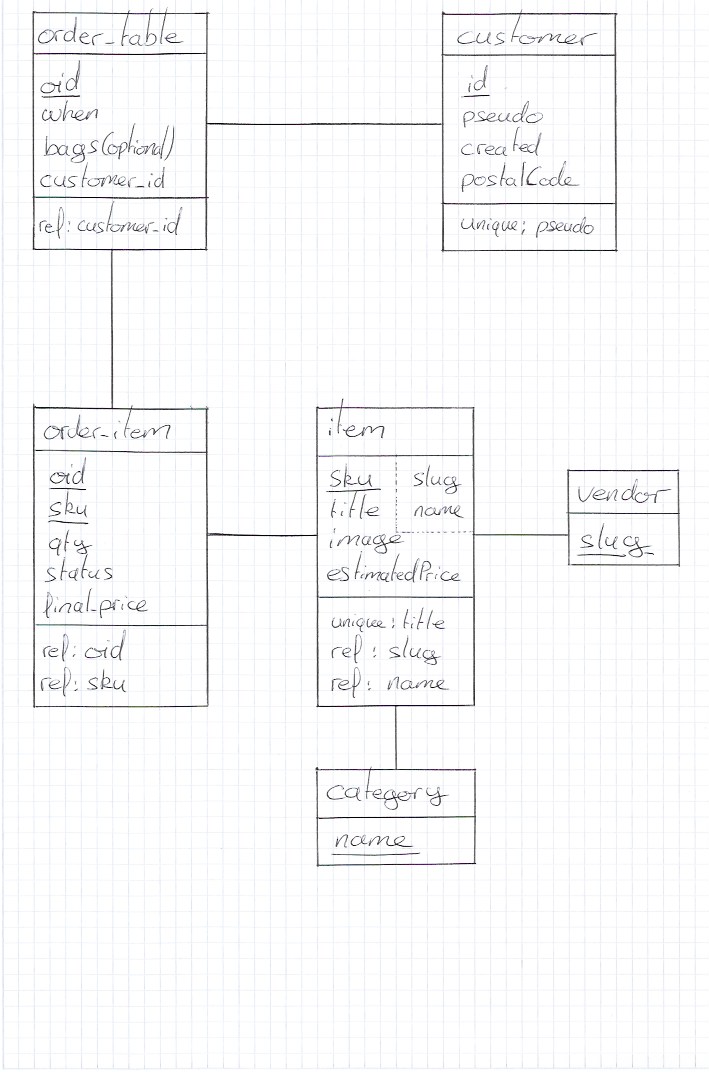 order_table
oid
when
bags(optional)
customer_id
ref: customer_id
customer
id
pseudo
created
postalCode
unique: pseudo
order_item
oid
sku
qty
status
final_price
ref: oid
ref: sku
item
sku slug
title name
image
estimatedPrice
unique: title
ref: slug
ref: name
vendor
slug
category
name